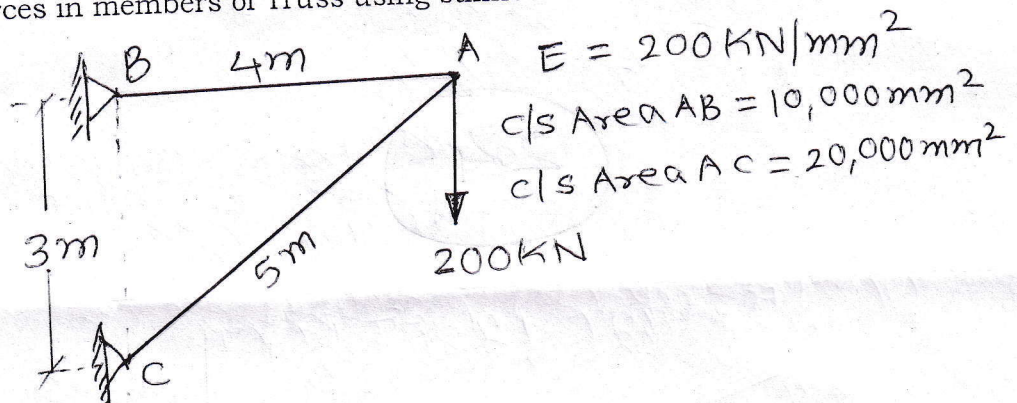 in members of Truss using
B 4m A E = 200 KN/mm²
c/s Area AB = 10,000mm²
c/s Area AC = 20,000mm²
3m
5m
200KN
C